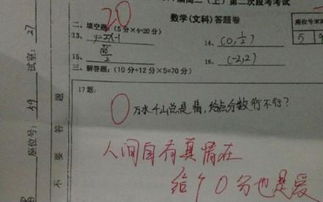 二（上）第二次段考考试
数学(文科)答题卷
20
二、填空题:(5分×4=20分)
13、y=2x-1
14、(0,1/2)
16、(-2,2)
三、解答题:(10分+12分×5=70分)
17题:
0
万水千山总是情,给点分数行不行?
人间自有真情在
给个0分也是爱
试室: 27
座位号: 49
不要答题